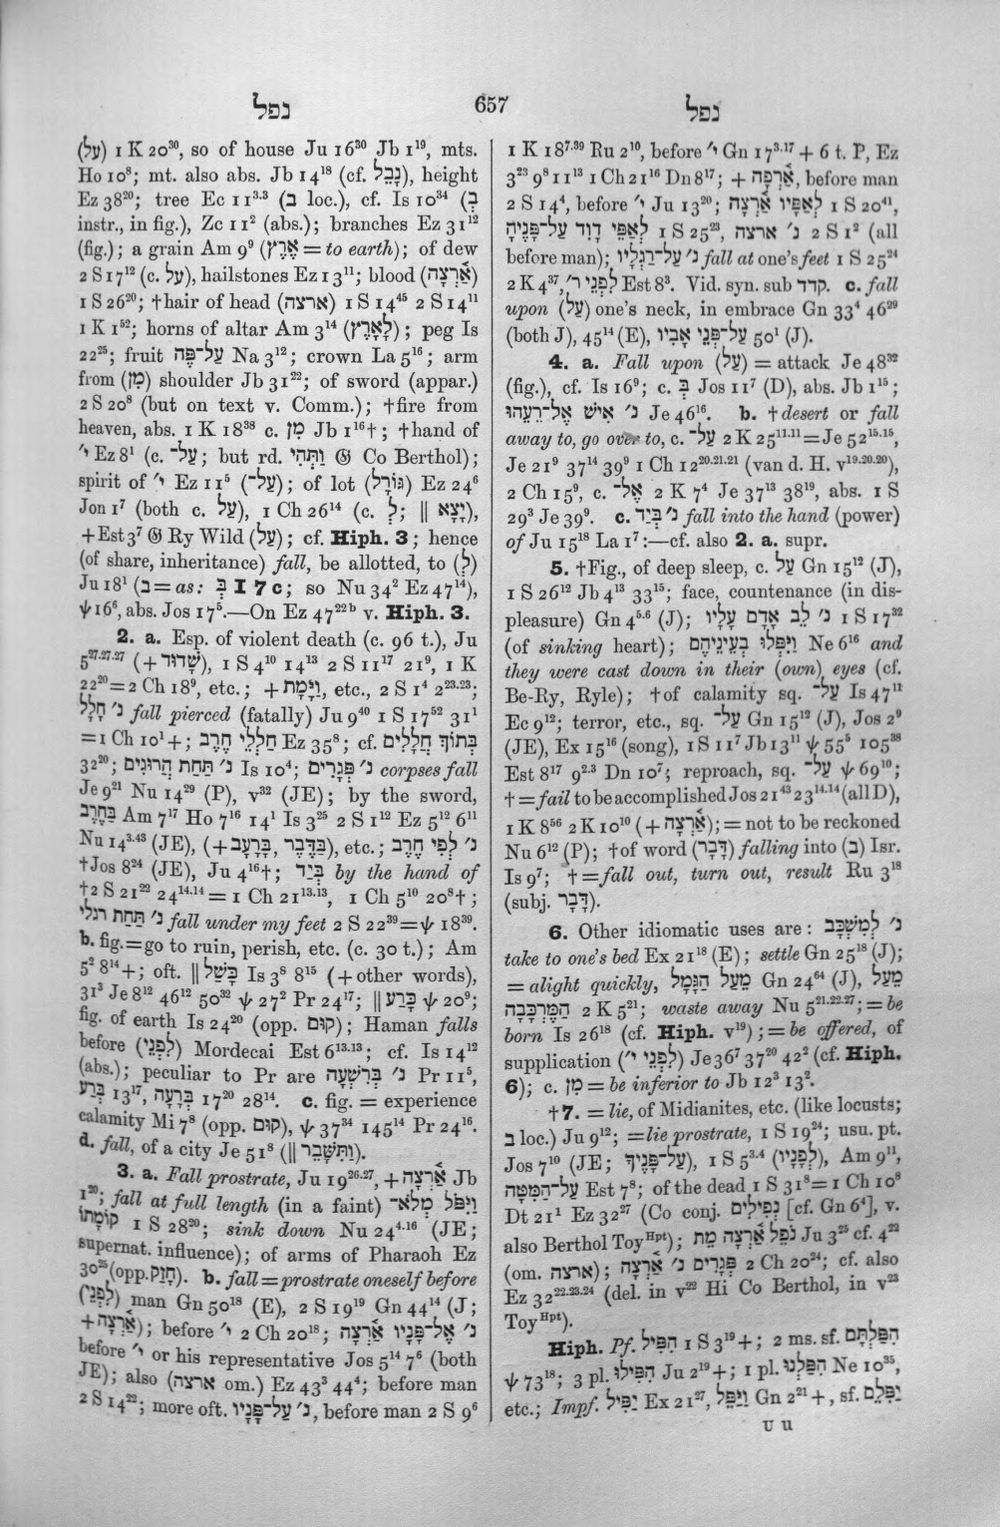 נפל
657
נפל
(על) 1 K 20³⁰, so of house Ju 16³⁰ Jb 1¹⁹, mts.
Ho 10⁸; mt. also abs. Jb 14¹⁸ (cf. נָבֵל), height
Ez 38²⁰; tree Ec 11³·³ (ב loc.), cf. Is 10³⁴ (בְּ
instr., in fig.), Zc 11² (abs.); branches Ez 31¹²
(fig.); a grain Am 9⁹ (אֶרֶץ = to earth); of dew
2 S 17¹² (c. על), hailstones Ez 13¹¹; blood (אַ֫רְצָה)
1 S 26²⁰; †hair of head (ארצה) 1 S 14⁴⁵ 2 S 14¹¹
1 K 1⁵²; horns of altar Am 3¹⁴ (לָאָרֶץ); peg Is
22²⁵; fruit עַל־פֶּה Na 3¹²; crown La 5¹⁶; arm
from (מִן) shoulder Jb 31²²; of sword (appar.)
2 S 20⁸ (but on text v. Comm.); †fire from
heaven, abs. 1 K 18³⁸ c. מִן Jb 1¹⁶†; †hand of
י׳ Ez 8¹ (c. עַל־; but rd. וַתְּהִי 𝔊 Co Berthol);
spirit of י׳ Ez 11⁵ (עַל־); of lot (גּוֹרָל) Ez 24⁶
Jon 1⁷ (both c. עַל), 1 Ch 26¹⁴ (c. לְ; ‖ יָצָא),
+Est 3⁷ 𝔊 Ry Wild (עַל); cf. Hiph. 3; hence
(of share, inheritance) fall, be allotted, to (לְ)
Ju 18¹ (ב=as: בְּ I 7 c; so Nu 34² Ez 47¹⁴),
ψ 16⁶, abs. Jos 17⁵.—On Ez 47²²ᵇ v. Hiph. 3.
2. a. Esp. of violent death (c. 96 t.), Ju
5²⁷·²⁷·²⁷ (+שָׁדוּד), 1 S 4¹⁰ 14¹³ 2 S 11¹⁷ 21⁹, 1 K
22²⁰=2 Ch 18⁹, etc.; +וַיָּמֹת, etc., 2 S 1⁴ 2²³·²³;
נ׳ חָלָל fall pierced (fatally) Ju 9⁴⁰ 1 S 17⁵² 31¹
=1 Ch 10¹+; חַלְלֵי חֶרֶב Ez 35⁸; cf. בְּתוֹךְ חֲלָלִים
32²⁰; נ׳ תַּחַת הֲרוּגִים Is 10⁴; נ׳ פְּגָרִים corpses fall
Je 9²¹ Nu 14²⁹ (P), v³² (JE); by the sword,
בַּחֶרֶב Am 7¹⁷ Ho 7¹⁶ 14¹ Is 3²⁵ 2 S 1¹² Ez 5¹² 6¹¹
Nu 14³·⁴³ (JE), (+בַּדֶּבֶר, בָּרָעָב), etc.; נ׳ לְפִי חֶרֶב
†Jos 8²⁴ (JE), Ju 4¹⁶†; בְּיַד by the hand of
†2 S 21²² 24¹⁴·¹⁴=1 Ch 21¹³·¹³, 1 Ch 5¹⁰ 20⁸†;
נ׳ תַּחַת רגלי fall under my feet 2 S 22³⁹=ψ 18³⁹.
b. fig.=go to ruin, perish, etc. (c. 30 t.); Am
5² 8¹⁴+; oft. ‖ כָּשַׁל Is 3⁸ 8¹⁵ (+other words),
31³ Je 8¹² 46¹² 50³² ψ 27² Pr 24¹⁷; ‖ כָּרַע ψ 20⁹;
fig. of earth Is 24²⁰ (opp. קוּם); Haman falls
before (לִפְנֵי) Mordecai Est 6¹³·¹³; cf. Is 14¹²
(abs.); peculiar to Pr are נ׳ בְּרִשְׁעָה Pr 11⁵,
בְּרָע 13¹⁷, בְּרָעָה 17²⁰ 28¹⁴. c. fig. = experience
calamity Mi 7⁸ (opp. קוּם), ψ 37³⁴ 145¹⁴ Pr 24¹⁶.
d. fall, of a city Je 51⁸ (‖ וַתִּשָּׁבֵר).
3. a. Fall prostrate, Ju 19²⁶·²⁷, +אַ֫רְצָה Jb
1²⁰; fall at full length (in a faint) וַיִּפֹּל מְלֹא־
קוֹמָתוֹ 1 S 28²⁰; sink down Nu 24⁴·¹⁶ (JE;
supernat. influence); of arms of Pharaoh Ez
30²⁵ (opp. חָזַק). b. fall=prostrate oneself before
(לִפְנֵי) man Gn 50¹⁸ (E), 2 S 19¹⁹ Gn 44¹⁴ (J;
+אַ֫רְצָה); before י׳ 2 Ch 20¹⁸; נ׳ אֶל־פָּנָיו אַ֫רְצָה
before י׳ or his representative Jos 5¹⁴ 7⁶ (both
JE); also (ארצה om.) Ez 43³ 44⁴; before man
2 S 14²²; more oft. נ׳ עַל־פָּנָיו, before man 2 S 9⁶
1 K 18⁷·³⁹ Ru 2¹⁰, before י׳ Gn 17³·¹⁷ + 6 t. P, Ez
3²³ 9⁸ 11¹³ 1 Ch 21¹⁶ Dn 8¹⁷; + אַ֫רְצָה, before man
2 S 14⁴, before י׳ Ju 13²⁰; לְאַפָּיו אַ֫רְצָה 1 S 20⁴¹,
לְאַפֵּי דָוִד עַל־פָּנֶיהָ 1 S 25²³, נ׳ ארצה 2 S 1² (all
before man); נ׳ עַל־רַגְלָיו fall at one's feet 1 S 25²⁴
2 K 4³⁷, לִפְנֵי ר׳ Est 8³. Vid. syn. sub קדד. c. fall
upon (עַל) one's neck, in embrace Gn 33⁴ 46²⁹
(both J), 45¹⁴ (E), עַל־פְּנֵי אָבִיו 50¹ (J).
4. a. Fall upon (עַל) = attack Je 48³²
(fig.), cf. Is 16⁹; c. בְּ Jos 11⁷ (D), abs. Jb 1¹⁵;
נ׳ אִישׁ אֶל־רֵעֵהוּ Je 46¹⁶. b. †desert or fall
away to, go over to, c. עַל־ 2 K 25¹¹·¹¹=Je 52¹⁵·¹⁵,
Je 21⁹ 37¹⁴ 39⁹ 1 Ch 12²⁰·²¹·²¹ (van d. H. v¹⁹·²⁰·²⁰),
2 Ch 15⁹, c. אֶל־ 2 K 7⁴ Je 37¹³ 38¹⁹, abs. 1 S
29³ Je 39⁹. c. נ׳ בְּיַד fall into the hand (power)
of Ju 15¹⁸ La 1⁷:—cf. also 2. a. supr.
5. †Fig., of deep sleep, c. עַל Gn 15¹² (J),
1 S 26¹² Jb 4¹³ 33¹⁵; face, countenance (in dis-
pleasure) Gn 4⁵·⁶ (J); נ׳ לֵב אָדָם עָלָיו 1 S 17³²
(of sinking heart); וַיִּפְּלוּ בְּעֵינֵיהֶם Ne 6¹⁶ and
they were cast down in their (own) eyes (cf.
Be-Ry, Ryle); †of calamity sq. עַל־ Is 47¹¹
Ec 9¹²; terror, etc., sq. עַל־ Gn 15¹² (J), Jos 2⁹
(JE), Ex 15¹⁶ (song), 1 S 11⁷ Jb 13¹¹ ψ 55⁵ 105³⁸
Est 8¹⁷ 9²·³ Dn 10⁷; reproach, sq. עַל־ ψ 69¹⁰;
†=fail to be accomplished Jos 21⁴³ 23¹⁴·¹⁴ (all D),
1 K 8⁵⁶ 2 K 10¹⁰ (+אַ֫רְצָה); =not to be reckoned
Nu 6¹² (P); †of word (דָּבָר) falling into (ב) Isr.
Is 9⁷; †=fall out, turn out, result Ru 3¹⁸
(subj. דָּבָר).
6. Other idiomatic uses are: נ׳ לְמִשְׁכָּב
take to one's bed Ex 21¹⁸ (E); settle Gn 25¹⁸ (J);
=alight quickly, מֵעַל הַגָּמָל Gn 24⁶⁴ (J), מֵעַל
הַמֶּרְכָּבָה 2 K 5²¹; waste away Nu 5²¹·²²·²⁷; =be
born Is 26¹⁸ (cf. Hiph. v¹⁹); =be offered, of
supplication (לִפְנֵי י׳) Je 36⁷ 37²⁰ 42² (cf. Hiph.
6); c. מִן = be inferior to Jb 12³ 13².
†7. =lie, of Midianites, etc. (like locusts;
ב loc.) Ju 9¹²; =lie prostrate, 1 S 19²⁴; usu. pt.
Jos 7¹⁰ (JE; עַל־פָּנֶיךָ), 1 S 5³·⁴ (לְפָנָיו), Am 9¹¹,
עַל־הַמִּטָּה Est 7⁸; of the dead 1 S 31⁸=1 Ch 10⁸
Dt 21¹ Ez 32²⁷ (Co conj. נְפִילִים [cf. Gn 6⁴], v.
also Berthol Toy Hpt); נֹפֵל אַ֫רְצָה מֵת Ju 3²⁵ cf. 4²²
(om. ארצה); פְּגָרִים נ׳ אַ֫רְצָה 2 Ch 20²⁴; cf. also
Ez 32²²·²³·²⁴ (del. in v²² Hi Co Berthol, in v²³
Toy Hpt).
Hiph. Pf. הִפִּיל 1 S 3¹⁹+; 2 ms. sf. הִפַּלְתָּם
ψ 73¹⁸; 3 pl. הִפִּילוּ Ju 2¹⁹+; 1 pl. הִפַּלְנוּ Ne 10³⁵,
etc.; Impf. יַפִּיל Ex 21²⁷, וַיַּפֵּל Gn 2²¹+, sf. וַיַּפִּלֵם
U u